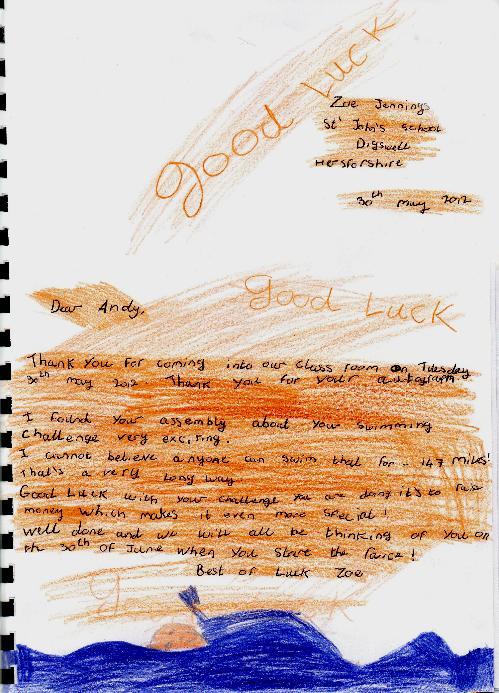 Good Luck
Zoe Jennings
St' John's School
Digswell
Hertsforshire
30th may 2012
Good Luck
Dear Andy,
Thank you for coming into our class room on Tuesday
30th may 2012. Thank you for your autograph
I found your assembly about your swimming
challenge very exciting.
I cannot believe anyone can swim that far - 147 miles!
That's a very long way.
Good Luck with your challenge you are doing it's to raise
money which makes it even more special!
well done and we will all be thinking of you on
the 30th of June when you start the
Best of Luck Zoe